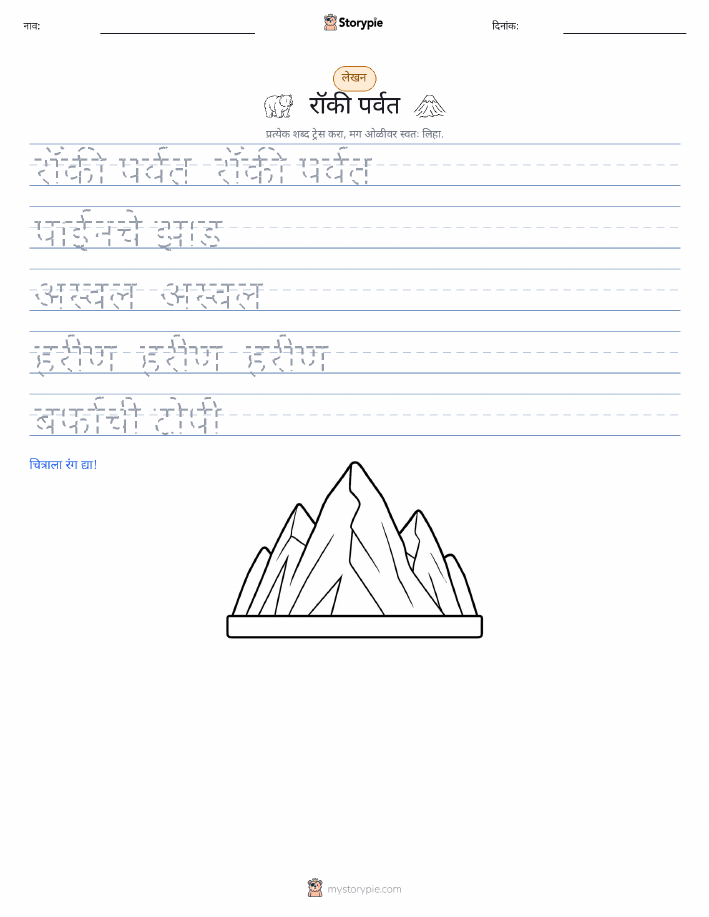 नाव:
Storypie
दिनांक:
लेखन
रॉकी पर्वत
प्रत्येक शब्द ट्रेस करा, मग ओळीवर स्वतः लिहा.
रॉकी पर्वत रॉकी पर्वत
पाईनचे झाड
अस्वल अस्वल
हरीण हरीण हरीण
बर्फाची टोपी
चित्राला रंग द्या!
mystorypie.com